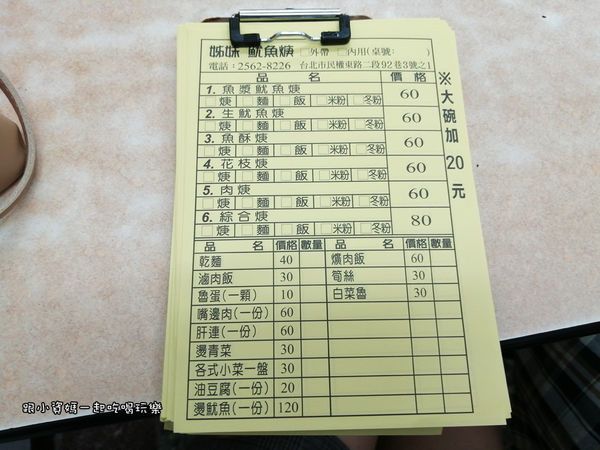 姊妹 魷魚焿 □外帶 □內用(桌號: )
電話:2562-8226 台北市民權東路二段92巷3號之1
品 名 價 格
1. 魚漿魷魚焿 60
□焿 □麵 □飯 □米粉 □冬粉
2. 生魷魚焿 60
□焿 □麵 □飯 □米粉 □冬粉
3. 魚酥焿 60
□焿 □麵 □飯 □米粉 □冬粉
4. 花枝焿 60
□焿 □麵 □飯 □米粉 □冬粉
5. 肉焿 60
□焿 □麵 □飯 □米粉 □冬粉
6. 綜合焿 80
□焿 □麵 □飯 □米粉 □冬粉
※大碗加 20 元
品 名 價格 數量 品 名 價格 數量
乾麵 40 爌肉飯 60
滷肉飯 30 筍絲 30
魯蛋(一顆) 10 白菜魯 30
嘴邊肉(一份) 60
肝連(一份) 60
燙青菜 30
各式小菜一盤 30
油豆腐(一份) 20
燙魷魚(一份) 120
跟小資媽一起吃喝玩樂